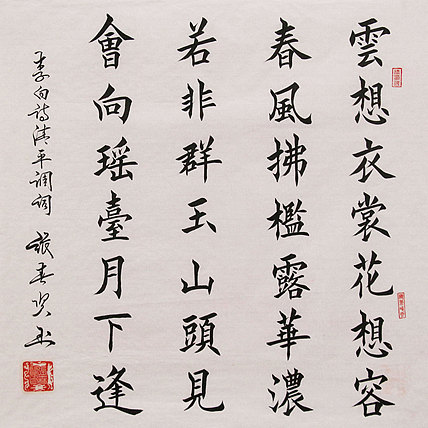 雲想衣裳花想容
春風拂檻露華濃
若非群玉山頭見
會向瑶臺月下逢
李白詩清平調詞